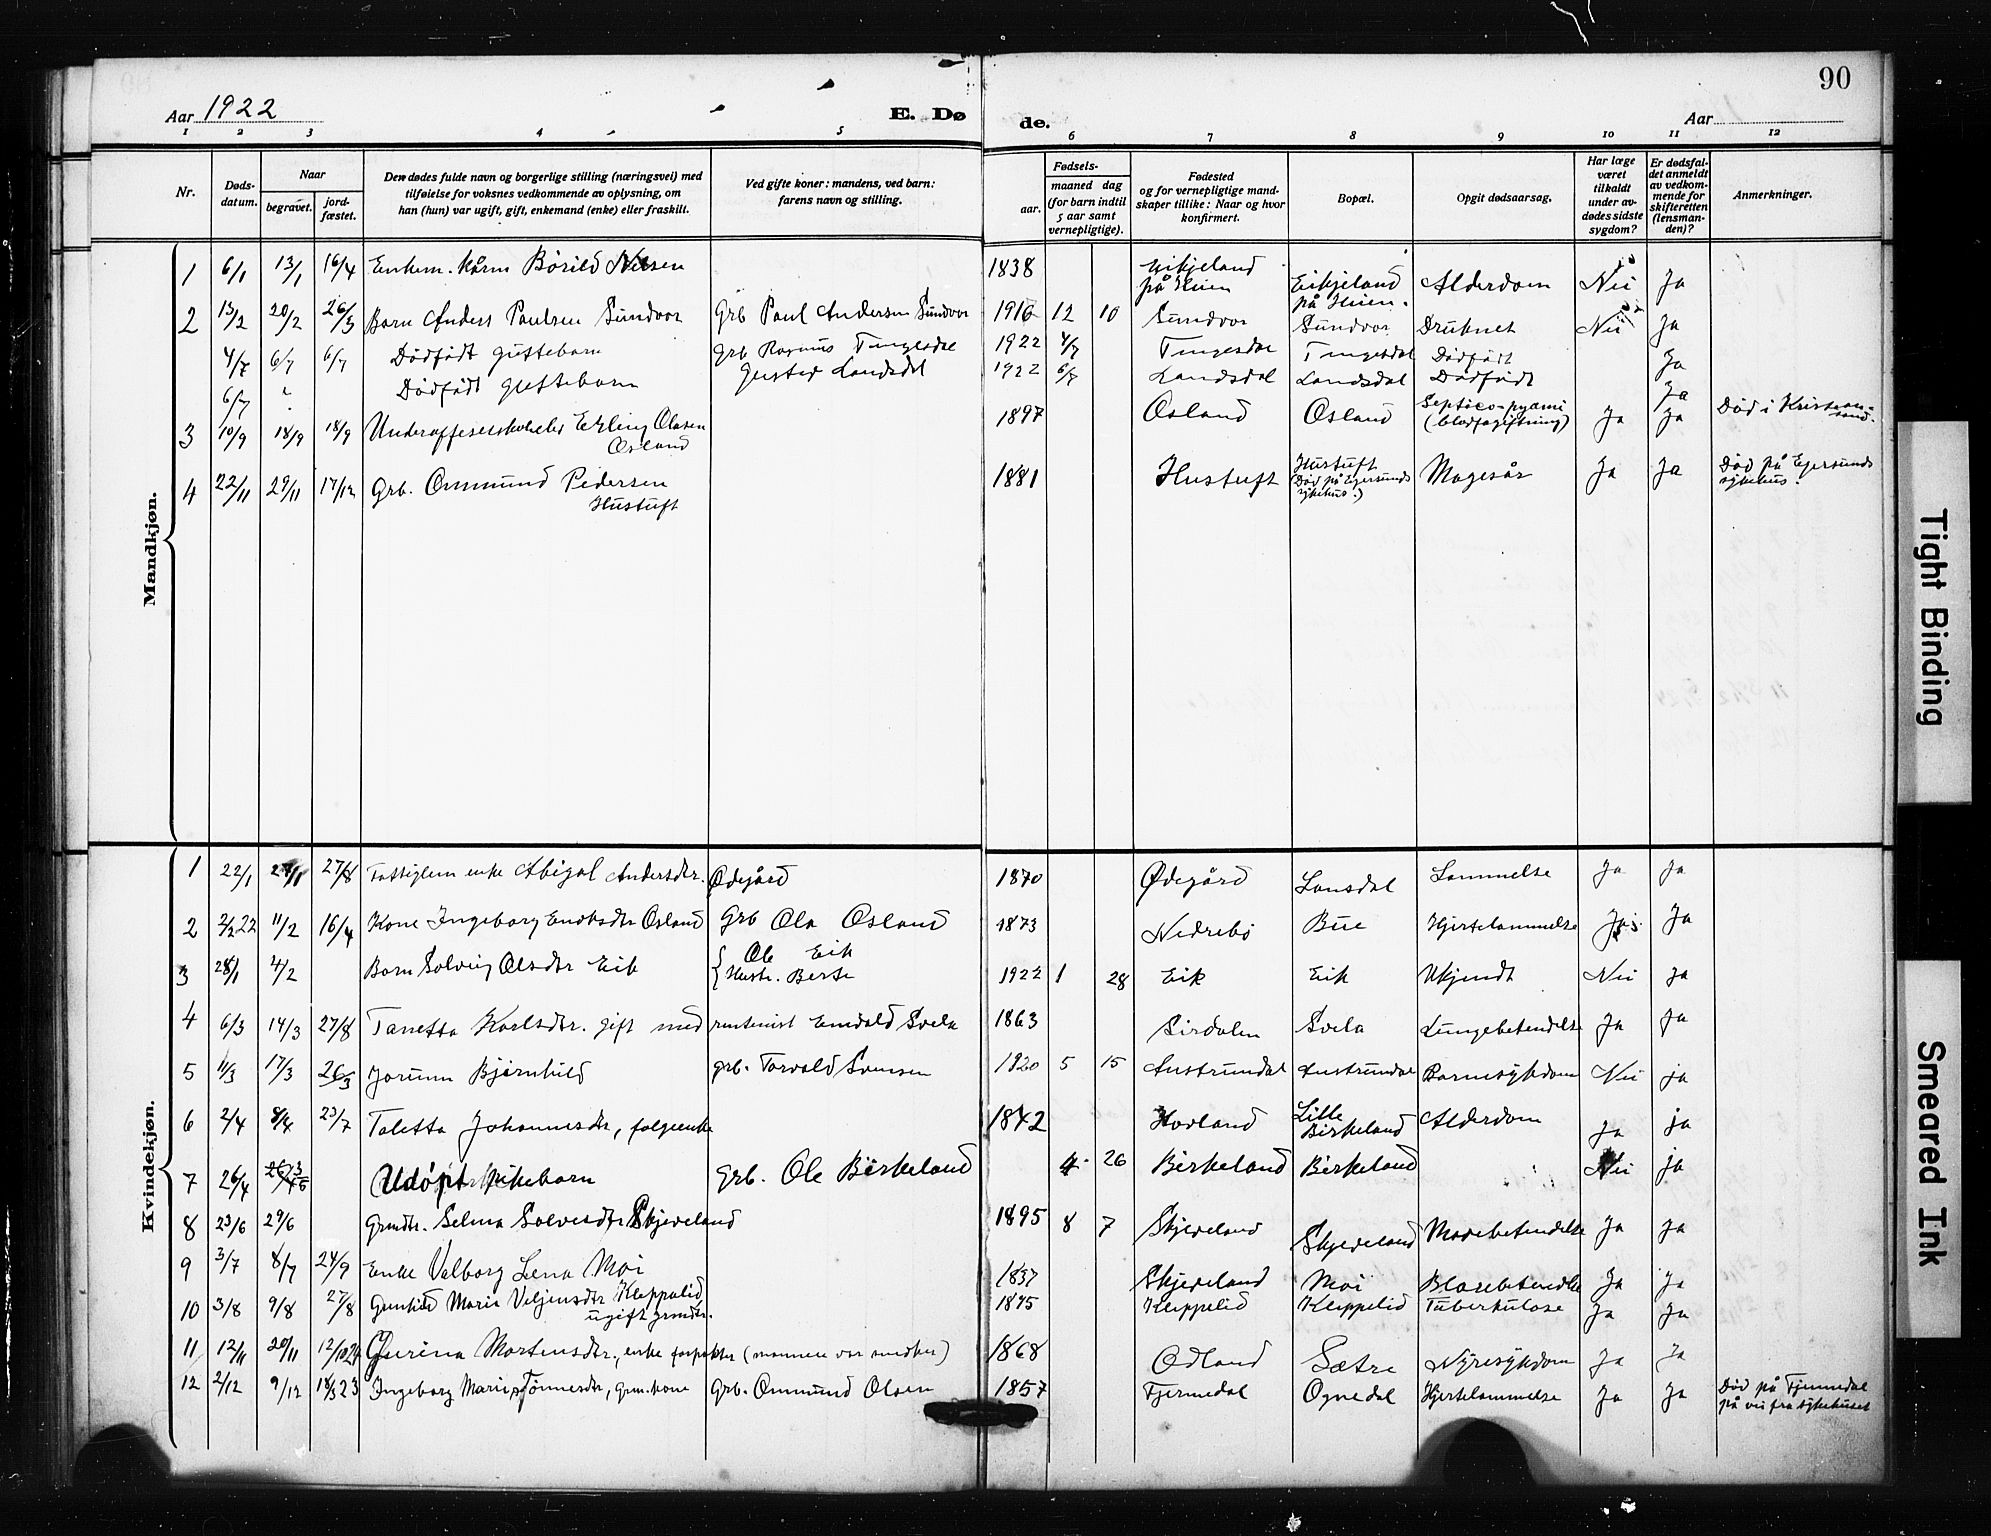 90
Aar 1922
E. Dø de.
Aar
1 2 3 4 5 6 7 8 9 10 11 12
Nr.
Døds-datum.
Naar
begravet.
jord-fæstet.
Den dødes fulde navn og borgerlige stilling (næringsvei) med
tilføielse for voksnes vedkommende av oplysning, om
han (hun) var ugift, gift, enkemand (enke) eller fraskilt.
Ved gifte koner: mandens, ved barn:
farens navn og stilling.
Fødsels-
aar.
maaned dag
(for barn indtil
5 aar samt
vernepligtige).
Fødested
og for vernepligtige mand-
skaper tillike: Naar og hvor
konfirmert.
Bopæl.
Opgit dødsaarsag.
Har læge
været
tilkaldt
under av-
dødes sidste
sygdom?
Er dødsfal-
det anmeldt
av vedkom-
mende for
skifteretten
(lensman-
den)?
Anmerkninger.
Mandkjøn.
1 6/1 13/1 16/4 Enkem. Børild Nilsen 1838 Eikjeland på Heien Eikjeland på Heien. Alderdom Nei Ja
2 13/2 20/2 26/3 Barn Anders Paulsen Sundvor Grb Paul Andersen Sundvor 1916 12 10 Sundvor Sundvor Druknet Nei Ja
4/7 6/7 6/7 Dødfødt guttebarn Grb Rasmus Tengesdal 1922 4/7 Tengesdal Tengesdal Dødfødt Ja
6/7 " Dødfødt guttebarn Gustav Landsdal 1922 6/7 Landsdal Landsdal Dødfødt Ja
3 10/9 18/9 18/9 Underofficerskoleelev Erling Olasen Osland 1897 Osland Osland Septico-pyæmi (blodforgiftning) Ja Ja Død i Kristiansand.
4 22/11 29/11 17/12 Grb. Ommund Pedersen Hustuft 1881 Hustuft Hustuft (Død på Egersunds sykehus.) Magesår Ja Ja Død på Egersunds sykehus.
Kvindekjøn.
1 22/1 27/1 27/8 Fattiglem enke Abigal Andersdtr. Ødegård 1870 Ødegård Lansdal Lammelse Ja Ja
2 2/2 22 11/2 16/4 Kone Ingeborg Enoksdtr Osland Grb Ola Osland 1873 Nedrebø Bue Hjertelammelse Ja Ja
3 28/1 4/2 Barn Solveig Olsdtr Eik { Ole Eik Hustr. Berte 1922 1 28 Eik Eik Ukjendt Nei Ja
4 6/3 14/3 27/8 Tanetta Karlsdtr. gift med rentenist Emdald Svela 1863 Sirdalen Svela Lungebetendelse Ja Ja
5 11/3 17/3 26/3 Jorunn Bjørnhild grb. Torvald Svensen 1920 5 15 Austrumdal Austrumdal Barnesykdom Nei ja
6 2/4 8/4 23/7 Taletta Johannesdtr, folgeenke 1842 Hovland Lille Birkeland Alderdom Ja ja
7 26/4 Udøpt pikebarn Grb. Ole Birkeland 4 26 Birkeland Birkeland Nei ja
8 23/6 29/6 Grmdtr. Selma Salvesdtr Skjeveland 1895 8 7 Skjeveland Skjeveland Mavebetendelse Ja ja
9 3/7 8/7 24/9 Enke Valborg Lena Moi 1837 Skjeveland Moi Blærebetendelse Ja Ja
10 3/8 9/8 27/8 Gunhild Marie Veljensdtr Kleppelid ugift grmdtr. Kleppelid Kleppelid Tuberkulose Ja Ja
11 12/11 20/11 12/10 24 Gurina Martensdtr., enke forpakter (mannen var smeden) 1868 Odland Sætre Nyresykdom Ja Ja
12 2/12 9/12 18/3 23 Ingeborg Marie Tønnesdtr, Grm. kone Grb. Ommund Olsen 1857 Fjermedal Ognedal Hjertelammelse Ja Ja Død på Fjermedal på vei fra sykehuset
Tight Binding
Smeared Ink